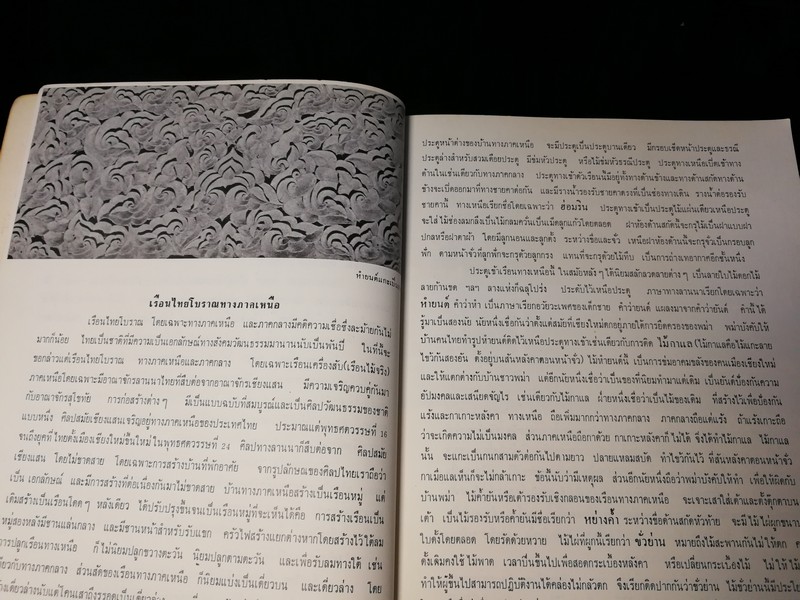 หำยนต์แกะเป็น
เรือนไทยโบราณทางภาคเหนือ
เรือนไทยโบราณ โดยเฉพาะทางภาคเหนือ และภาคกลางมีคติความเชื่อซึ่งละม้ายกันไม่
มากก็น้อย ไทยเป็นชาติที่มีความเป็นเอกลักษณ์ทางสังคมวัฒนธรรมมานานนับเป็นพันปี ในที่นี้จะ
ขอกล่าวแต่เรือนไทยโบราณ ทางภาคเหนือและภาคกลาง โดยเฉพาะเรือนเครื่องสับ(เรือนไม้จริง)
ภาคเหนือโดยเฉพาะมีอาณาจักรลานนาไทยที่สืบต่อจากอาณาจักรเชียงแสน มีความเจริญควบคู่กันมา
กับอาณาจักรสุโขทัย การก่อสร้างต่างๆ มีเป็นแบบฉบับที่สมบูรณ์และเป็นศิลปวัฒนธรรมของชาติ
แบบหนึ่ง ศิลปสมัยเชียงแสนเจริญอยู่ทางภาคเหนือของประเทศไทย ประมาณแต่พุทธศตวรรษที่ 16
จนถึงยุคที่ไทยตั้งเมืองเชียงใหม่ขึ้นใหม่ในพุทธศตวรรษที่ 24 ศิลปทางลานนาก็สืบต่อจาก ศิลปสมัย
เชียงแสน โดยไม่ขาดสาย โดยเฉพาะการสร้างบ้านที่พักอาศัย จากรูปลักษณ์ของศิลปไทยเราถือว่า
เป็น เอกลักษณ์ และมีการสร้างที่ต่อเนื่องกันมาไม่ขาดสาย บ้านทางภาคเหนือสร้างเป็นเรือนหมู่ แต่
เดิมสร้างเป็นเรือนโดดๆ หลังเดียว ได้ปรับปรุงขึ้นจนเป็นเรือนหมู่จะเห็นได้คือ การสร้างเรือนเป็น
หมู่สองหลังมีชานแล่นกลาง และมีชานหน้าสำหรับรับแขก ครัวไฟสร้างแยกต่างหากโดยสร้างไว้ใต้ลม
การปลูกเรือนทางเหนือ ก็ไม่นิยมปลูกขวางตะวัน นิยมปลูกตามตะวัน และเพื่อรับลมทางใต้ เช่น
เดียวกับทางภาคกลาง ส่วนสัดของเรือนทางภาคเหนือ ก็นิยมแบ่งเป็นเดี่ยวบน และเดี่ยวล่าง โดย
ประตูหน้าต่างของบ้านทางภาคเหนือ จะมีประตูเป็นประตูบานเดียว มีกรอบเช็ดหน้าประตูและธรณี
ประตูล่างสำหรับสวมเดือยประตู มีข่มหัวประตู หรือไม้ข่มหัวธรณีประตู ประตูทางเหนือเปิดเข้าทาง
ด้านในเช่นเดียวกับทางภาคกลาง ประตูทางเข้าตัวเรือนนี้มีอยู่ทั้งทางด้านข้างและทางด้านสกัดทางด้าน
ข้างจะเปิดออกมาที่ทางชายคาต่อกัน และมีรางน้ำรองรับชายคาตรงที่เป็นช่องทางเดิน รางน้ำต่อรองรับ
ชายคานี้ ทางเหนือเรียกชื่อโดยเฉพาะว่า ฮ่อมริน ประตูทางเข้าเป็นประตูไม้แผ่นเดียวเหนือประตู
จะใส่ไม้ช่องลมกลึงเป็นไม้กลมควั่นเป็นเม็ดลูกแก้วโดยตลอด ฝาห้องด้านสกัดนี้จะกรุไม้เป็นฝาแบบฝา
ปกลหรือฝาตาผ้า โดยมีลูกนอนและลูกตั้ง ระหว่างขื่อและขั่ว เหนือฝาห้องด้านนี้จะกรุขั่วเป็นกรอบลูก
ฟัก ตามหน้าขั่วที่ลูกฟักจะกรุด้วยลูกกรง แทนที่จะกรุด้วยไม้ทึบ เป็นการถ่ายเทอากาศอีกชั้นหนึ่ง
ประตูเข้าเรือนทางเหนือนี้ ในสมัยหลังๆได้นิยมสลักลวดลายต่างๆ เป็นลายใบไม้ดอกไม้
ลายก้านขด ฯลฯ ลางแห่งก็ฉลุโปร่ง ประดับไว้เหนือประตู ภาษาทางลานนาเรียกโดยเฉพาะว่า
หำยนต์ คำว่าหำ เป็นภาษาเรียกอวัยวะเพศของเด็กชาย คำว่ายนต์ แผลงมาจากคำว่ายันต์ คำนี้ได้
รู้มาเป็นสองนัย นัยหนึ่งเชื่อกันว่าตั้งแต่สมัยที่เชียงใหม่ตกอยู่ภายใต้การยึดครองของพม่า พม่าบังคับให้
บ้านคนไทยทำรูปหำยนต์ติดไว้เหนือประตูทางเข้าเช่นเดียวกับการติด ไม้กาแล (ไม้กาแลคือไม้แกะลาย
ไขว้กันสองอัน ตั้งอยู่บนสันหลังคาตอนหน้าขั่ว) ไม้หำยนต์นี้ เป็นการข่มอาคมขลังของคนเมืองเชียงใหม่
และให้แตกต่างกับบ้านชาวพม่า แต่อีกนัยหนึ่งเชื่อว่าเป็นของที่นิยมทำมาแต่เดิม เป็นยันต์ป้องกันความ
อัปมงคลและเสนียดจัญไร เช่นเดียวกับไม้กาแล ฝ่ายหนึ่งเชื่อว่าเป็นไม้ของเดิม ที่สร้างไว้เพื่อป้องกัน
แร้งและกาเกาะหลังคา ทางเหนือ ถือเพิ่มมากกว่าทางภาคกลาง ภาคกลางถือแต่แร้ง ถ้าแร้งเกาะถือ
ว่าจะเกิดความไม่เป็นมงคล ส่วนภาคเหนือถือกาด้วย กาเกาะหลังคาก็ไม่ได้ จึงได้ทำไม้กาแล ไม้กาแล
นั้น จะแกะเป็นกนกสามตัวต่อกันไปตามยาว ปลายแหลมสบัด ทำไขว้กันไว้ ที่สันหลังคาตอนหน้าขั่ว
กาเมื่อแลเห็นก็จะไม่กล้าเกาะ ข้อนี้นับว่ามีเหตุผล ส่วนอีกนัยหนึ่งถือว่าพม่าบังคับให้ทำ เพื่อให้ผิดกับ
บ้านพม่า ไม้ค้ำยันหรือเต้ารองรับเชิงกลอนของเรือนทางภาคเหนือ จะเจาะเสาใส่เต้าและตั้งตุ๊กตาบน
เต้า เป็นไม้รองรับหรือค้ำยันมีชื่อเรียกว่า หย่างค้ำ ระหว่างขื่อด้านสกัดหัวท้าย จะมีไม้ไผ่ผูกขนาน
ไปดั้งโดยตลอด โดยรัดด้วยหวาย ไม้ไผ่ที่ผูกนี้เรียกว่า ขั่วย่าน หมายถึงไม้สะพานกันไม่ให้ตก
ดั้งเดิมคงใช้ไม้พาด เวลาปีนขึ้นไปเพื่อสอดกระเบื้องหลังคา หรือเปลี่ยนกระเบื้องไม้
ทำให้ผู้ขึ้นไปสามารถปฏิบัติงานได้คล่องไม่กลัวตก จึงเรียกติดปากกันว่าขั่วย่าน ไม้ขั่วย่านนี้มีประ